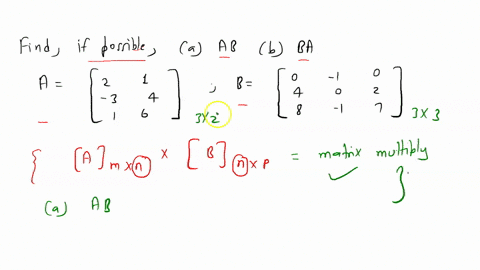 Find, if possible, (a) AB (b) BA
A = [ 2 1 ; B = [ 0 -1 0
-3 4 4 0 2
1 6 ] 3×2 8 -1 7 ] 3×3
{ [A] m×n × [B] n×p = matrix multibly }
(a) AB